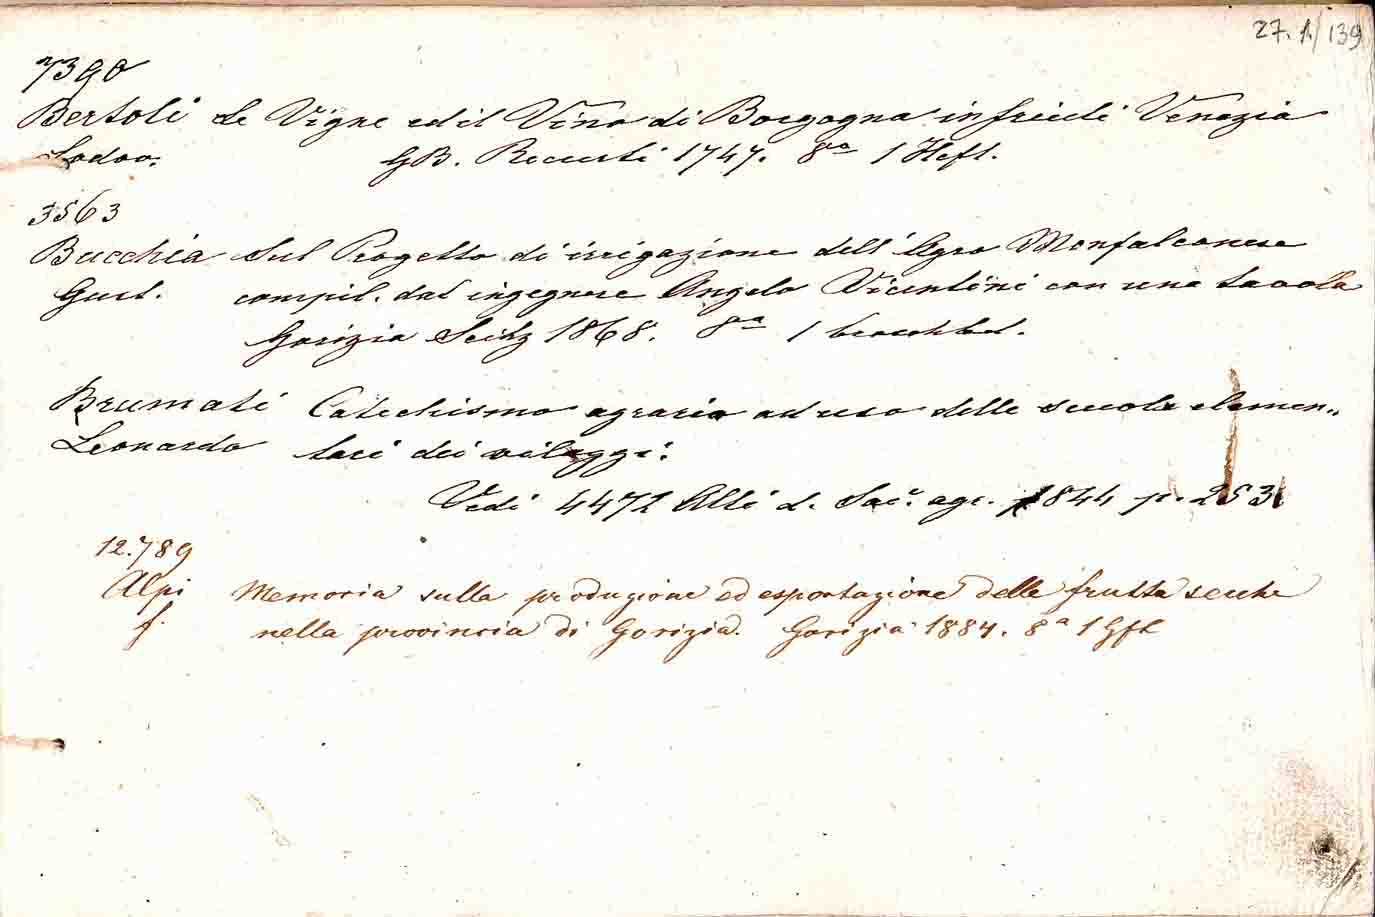 27. 1/139
7390
Bertoli Le Vigne ed il Vino di Borgogna in friuli Venezia
Lodov. GB. Recurti 1747. 8vo 1 Heft.
3563
Bucchia Sul Progetto di irrigazione dell'Agro Monfalconese
Gust. compil. dal ingegnere Angelo Vicentini con una tavola
Gorizia Seitz 1868. 8a 1
Brumati Catechismo agrario ad uso delle scuole elemen„
Leonardo tari dei vilaggi.
Vedi 4472 Atti d. Soc. agr. 1844 p. 253
12.789
Alpi Memoria sulla produzione ed esportazione delle frutta secche
f. nella provincia di Gorizia. Gorizia 1884. 8a 1 Hft